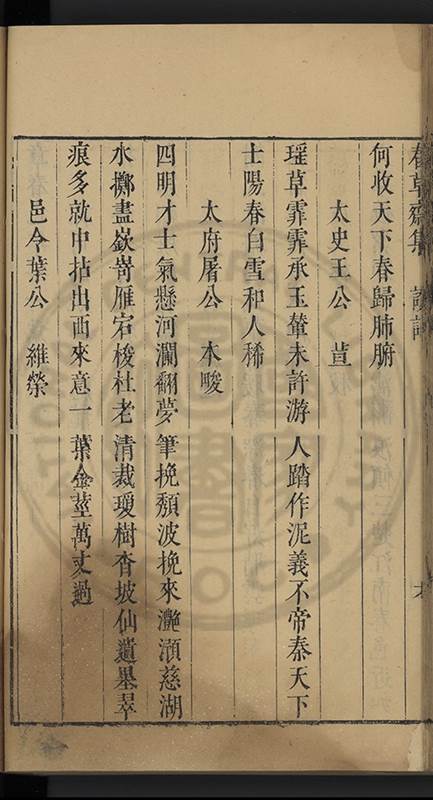 春草齋集
何收天下春歸肺腑
太史王公
瑶草霏霏承玉輦未許游人踏作泥義不帝秦天下
士陽春白雪和人稀
太府屠公 本畯
四明才士氣懸河瀾翻夢筆挽頹波挽來灔澦慈湖
水擲盡嶔嵜雁宕梭杜老清裁瓊樹杳坡仙遺墨翠
痕多就中拈出西來意一葉金莖萬丈過
邑令葉公 維榮